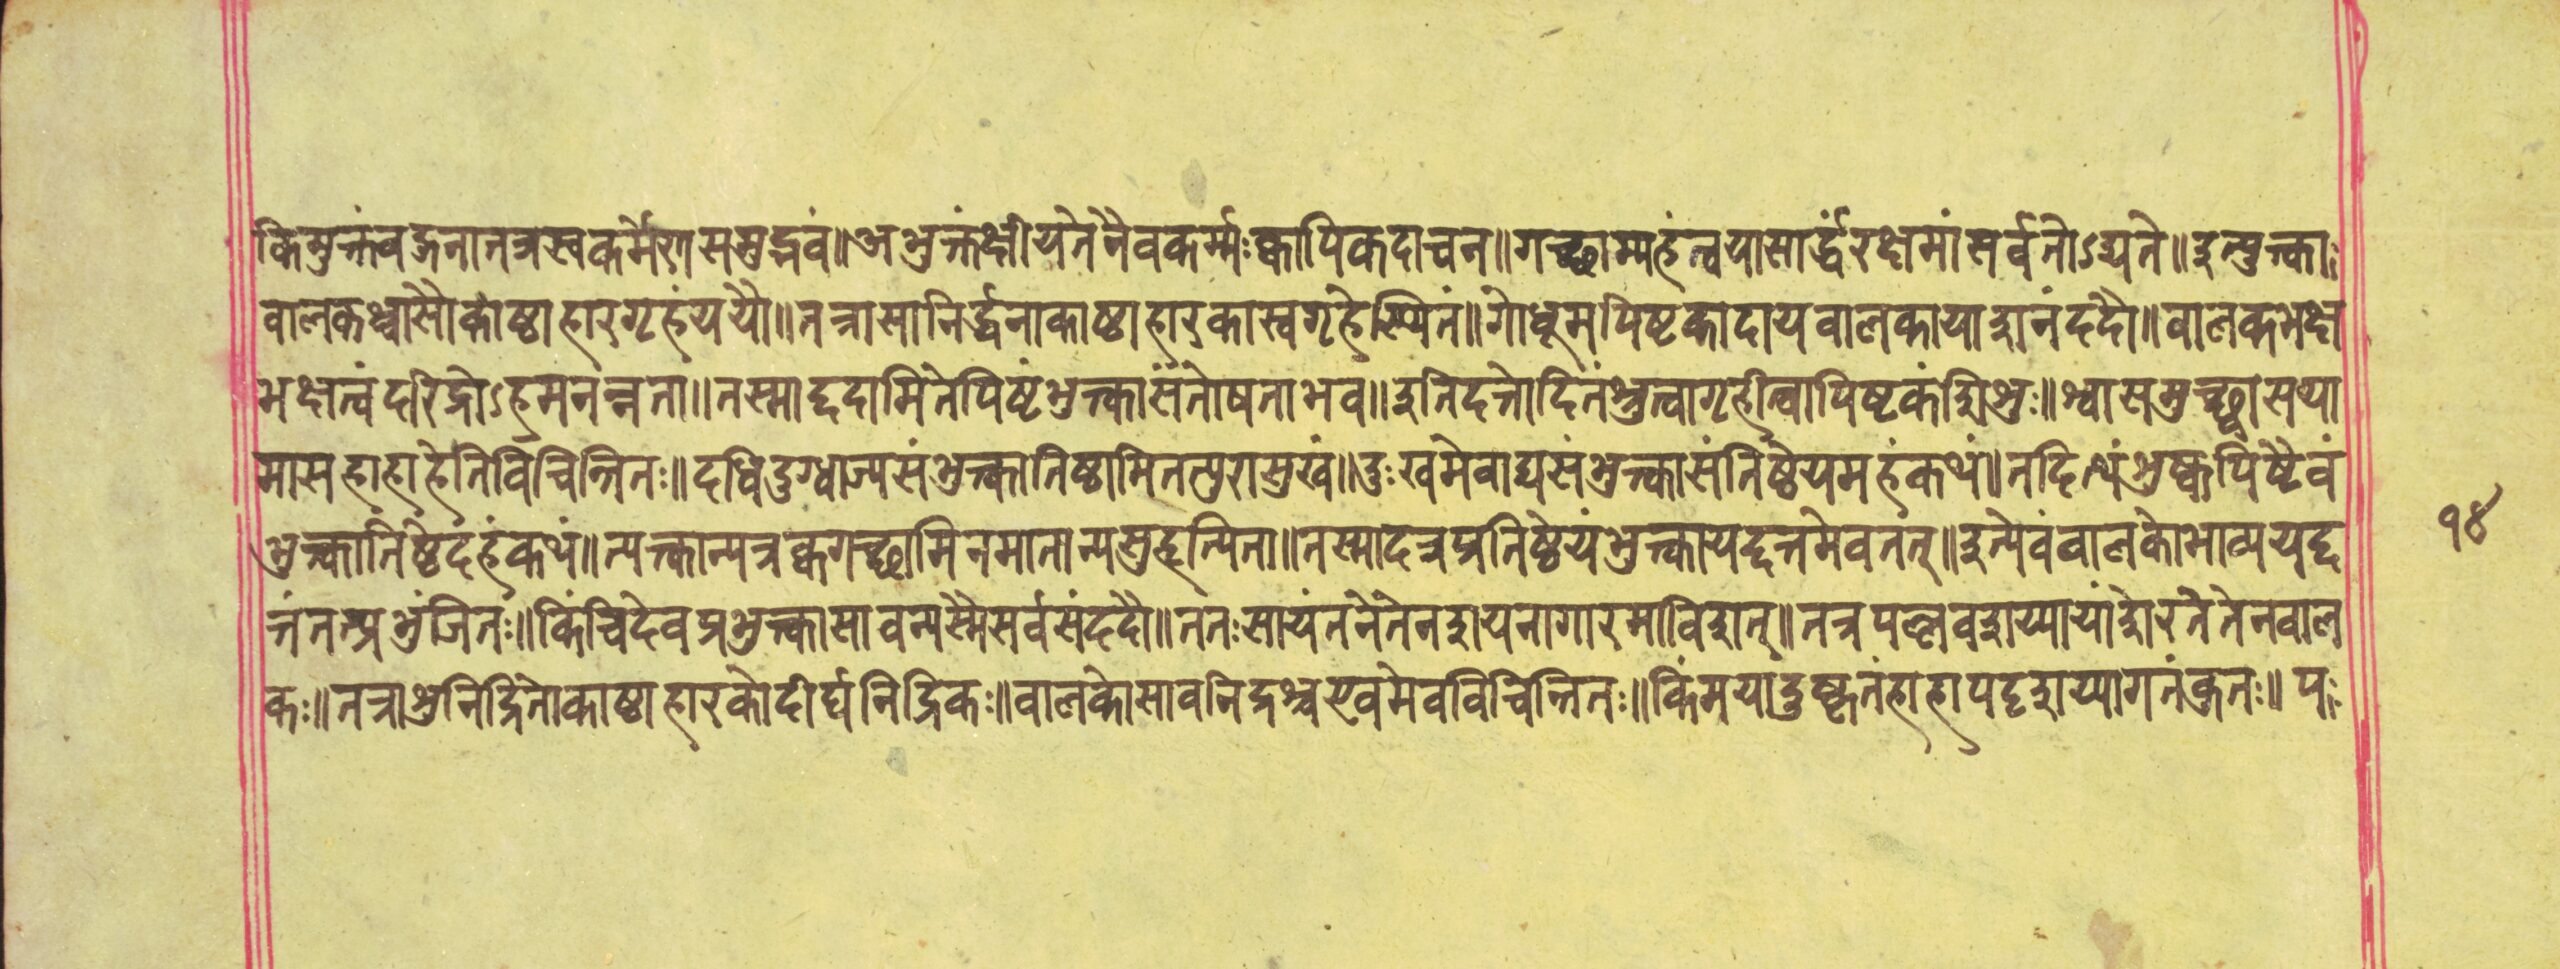 किमुक्तंवद्गनातत्रस्वकर्मेणसमुद्भवं॥अभुक्तंक्षीयतेनैवकर्म्मःक्वापिकदाचन॥गच्छाम्यहंत्वयासार्द्धंरक्षमांसर्वतोऽद्यते॥इत्युक्त्काः
बालकश्चासौकाष्ठाहारगृहंययौ॥तत्रासानिर्द्धनाकाष्ठाहारकास्वगृहेस्थितं॥गोधूमपिष्टकादायबालकायाशनंददौ॥बालकभक्ष
भक्षत्वंदरिद्रोऽहमनन्नता॥तस्माद्ददामितेपिष्टंभुक्त्कासंतोषताभव॥इतिदत्तोदितंश्रुत्वागृहीत्वापिष्टकंशिशुः॥श्वासमुच्छ्वासया
मासहाहाहेतिविचिन्तितः॥दधिदुग्धाज्यसंभुक्त्कातिष्ठामितत्पुरासुखं॥दुःखमेवाद्यसंभुक्त्कासंतिष्ठेयमहंकथं॥तदित्थंशुष्कपिष्टैवं
भुक्त्कातिष्ठेदहंकथं॥त्यक्त्कान्यत्रक्वगच्छामिनमातान्यसुहृत्पिता॥तस्मादत्रप्रतिष्ठेयंभुक्त्कायद्दत्तमेवतत्॥इत्येवंबालकोभाव्ययद्द
त्तंतत्प्रभुंजितः॥किंचिदेवप्रभुक्त्कासावन्यस्मैसर्वसंददौ॥ततःसायंतनेतेनशयनागारमाविशत्॥तत्रपल्लवशय्यायांशेरतेतेनबाल
कः॥तत्राशुनिद्रितोकाष्ठाहारकोदीर्घनिद्रिकः॥बालकोसावनिद्रश्चएवमेवविचिन्तितः॥किंमयादुष्कृतंहाहापद्दशय्यागतंकुतः॥पः
१४